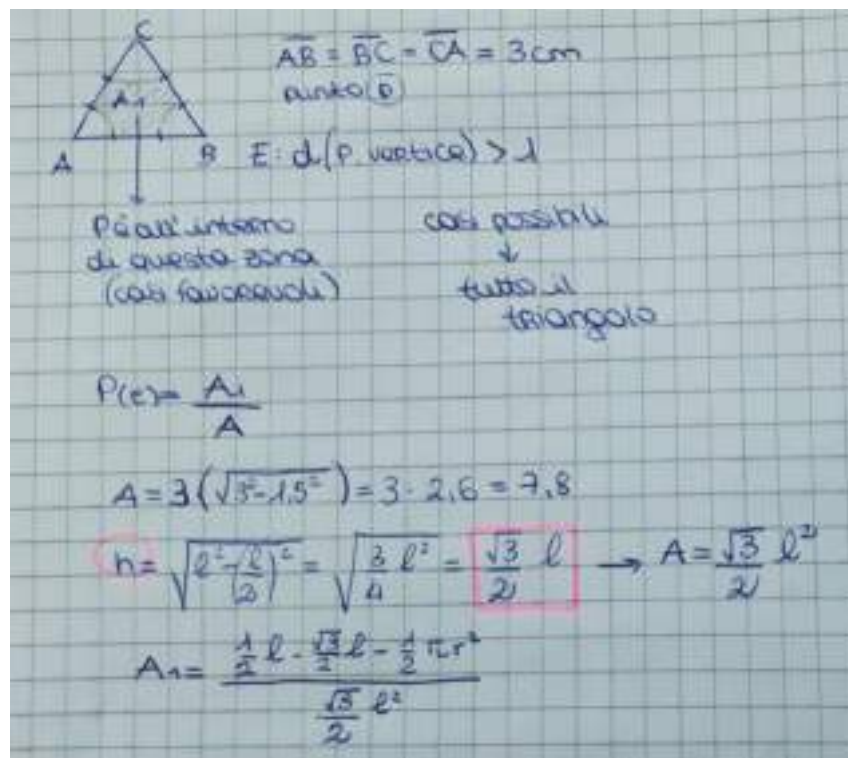 C
A₁
A B
AB = BC = CA = 3cm
punto P
E: d(P, vertice) > 1
P è all'interno
di questa zona
(casi favorevoli)
casi possibili
↓
tutto il
triangolo
P(E) = A₁ / A
A = 3(√3² - 1,5²) = 3 · 2,6 = 7,8
h = √(l² - (l/2)²) = √(3/4 l²) = √3/2 l → A = √3/2 l²
A₁ = (1/2 l · √3/2 l - 1/2 πr²) / (√3/2 l²)